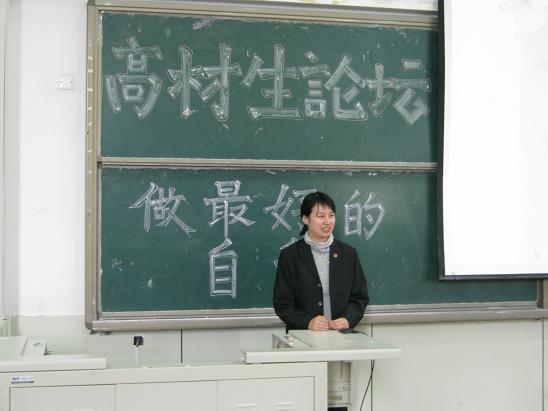 高材生論坛
做最好的
自